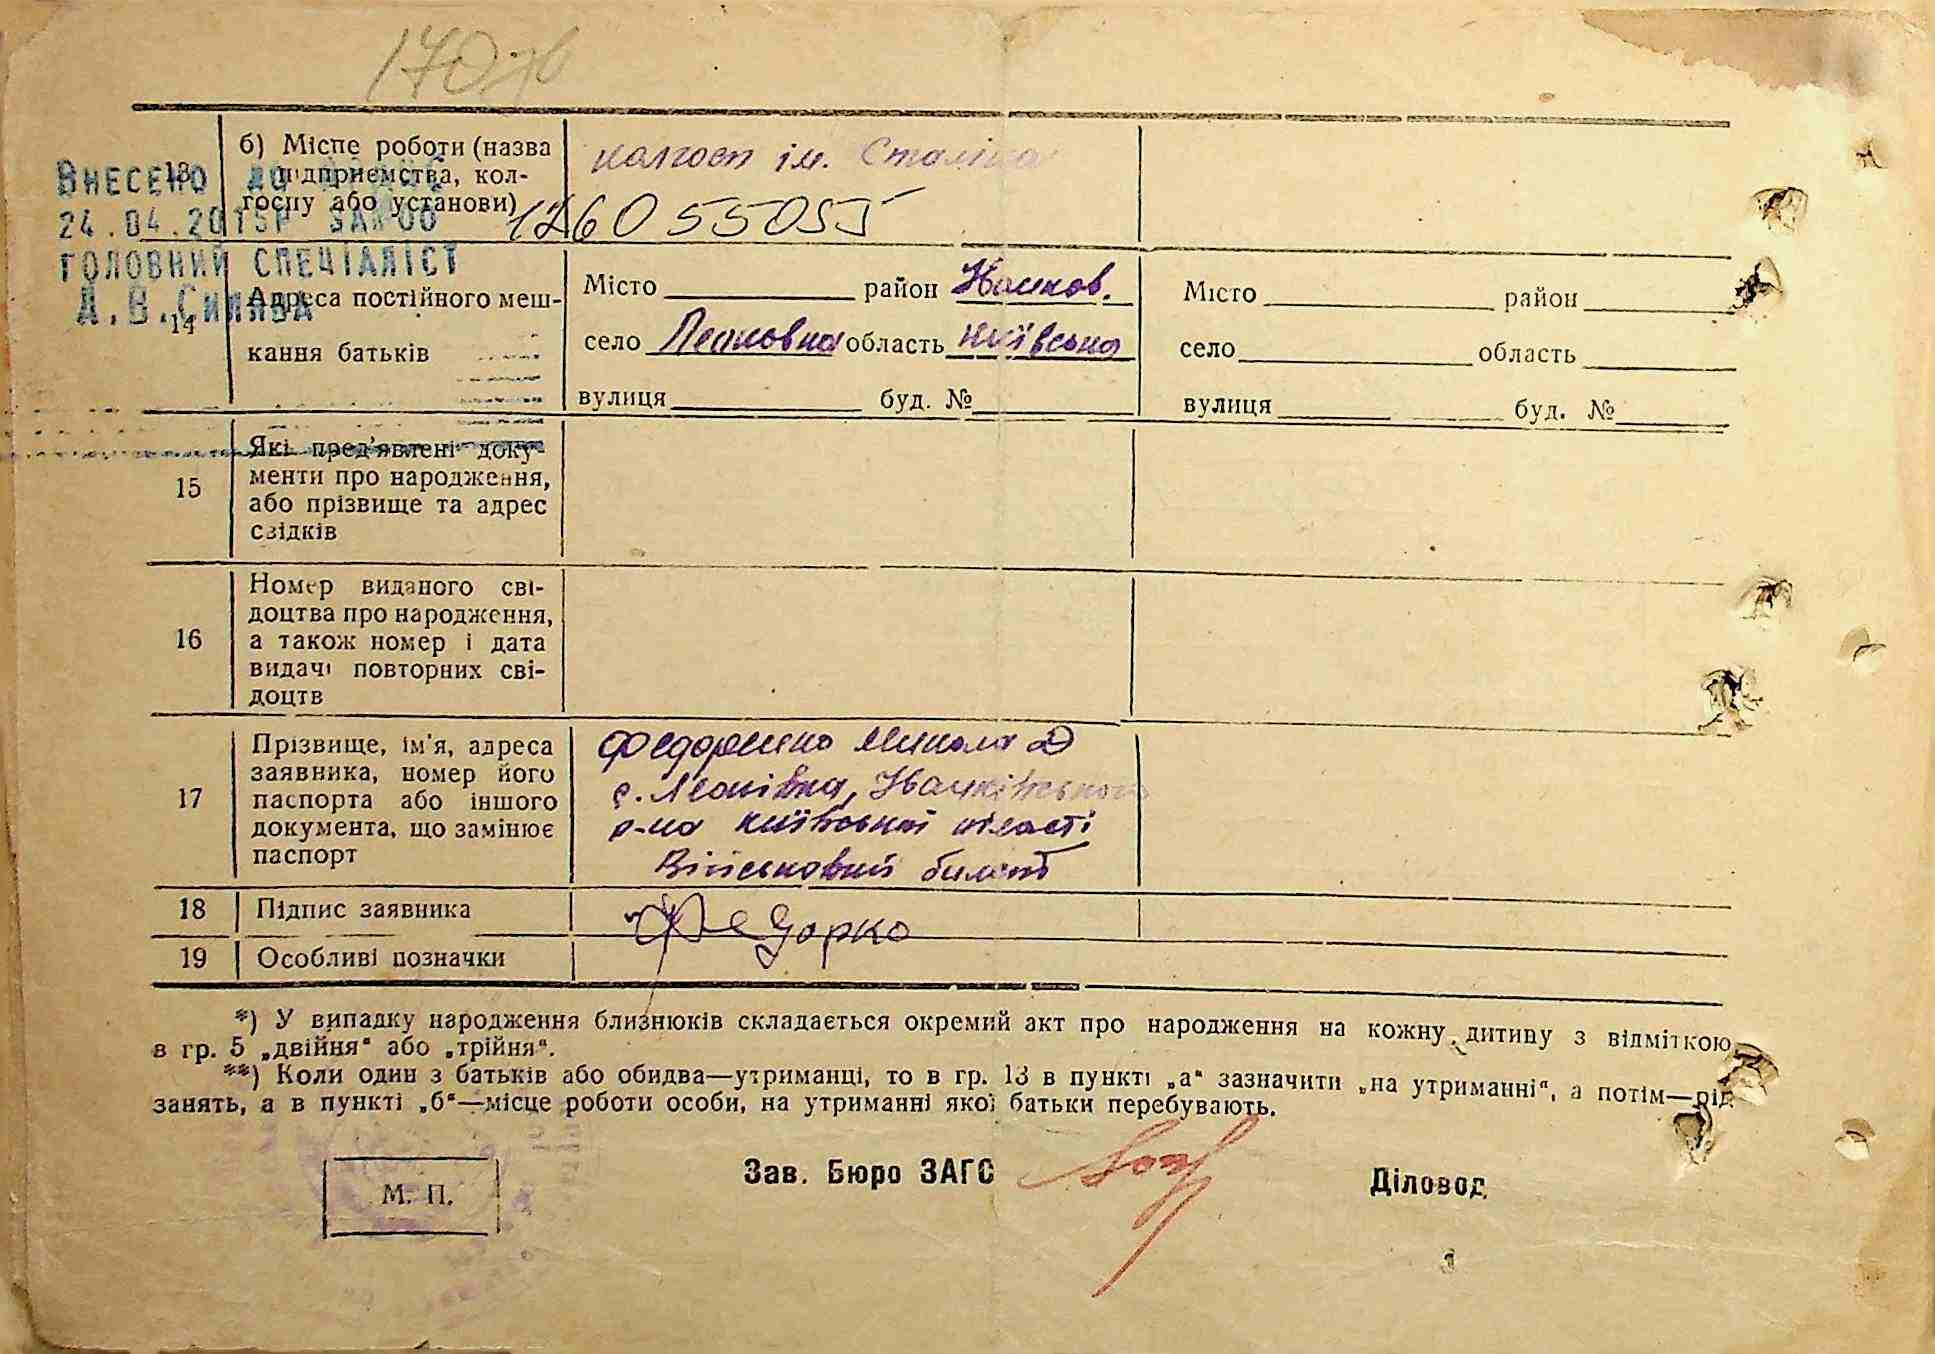 170
13
б) Місце роботи (назва
підприємства, кол-
госпу або установи)
колгосп ім. Сталіна
12605505
ВНЕСЕНО ДО
24.04.2015Р
ГОЛОВНИЙ СПЕЦІАЛІСТ
А.В.
14
Адреса постійного меш-
кання батьків
Місто район
село область Київська
вулиця буд. №
Місто район
село область
вулиця буд. №
15
Які пред’явлені доку-
менти про народження,
або прізвище та адрес
свідків
16
Номер виданого сві-
доцтва про народження,
а також номер і дата
видачі повторних сві-
доцтв
17
Прізвище, ім'я, адреса
заявника, номер його
паспорта або іншого
документа, що замінює
паспорт
Микола
с. Леонівка,
р-на Київської області
Військовий билет
18
Підпис заявника
Федорко
19
Особливі позначки
*) У випадку народження близнюків складається окремий акт про народження на кожну дитину з відміткою
в гр. 5 „двійня“ або „трійня“.
**) Коли один з батьків або обидва—утриманці, то в гр. 13 в пункті „а“ зазначити „на утриманні“, а потім—рід
занять, а в пункті „б“—місце роботи особи, на утриманні якої батьки перебувають.
М. П.
Зав. Бюро ЗАГС
Діловод